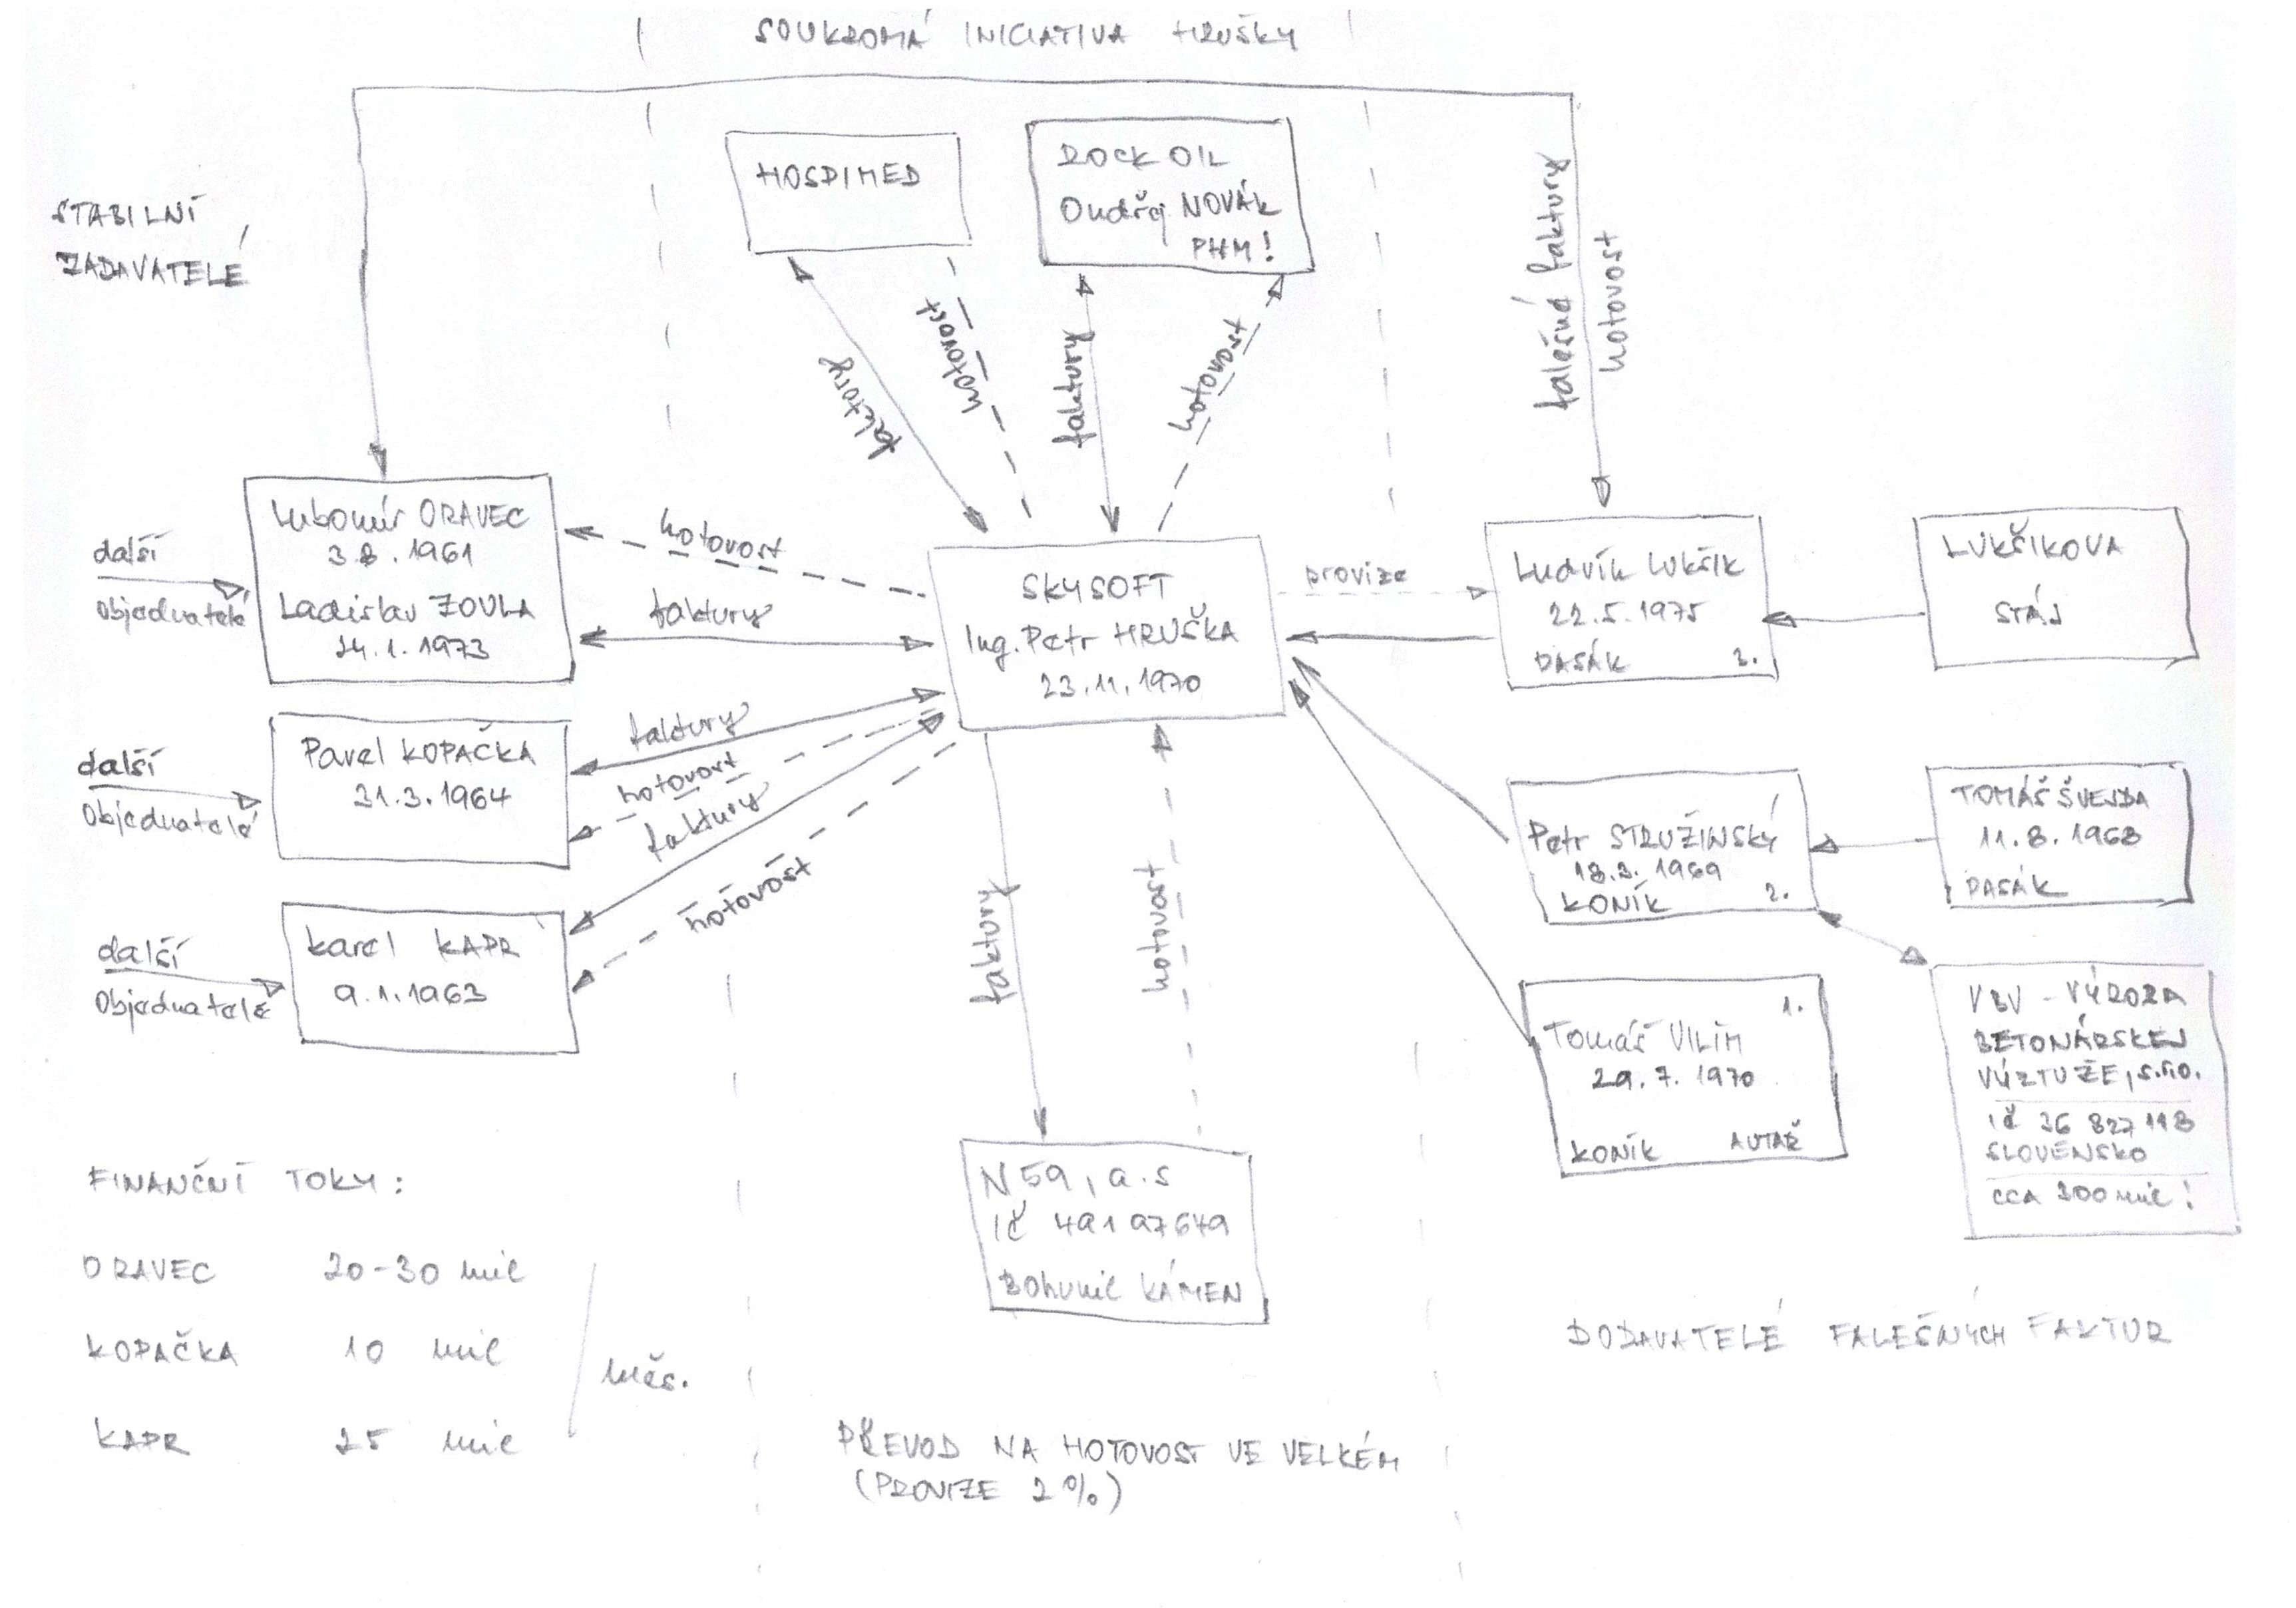 SOUKROMÁ INICIATIVA HRUŠKY
STABILNÍ
ZADAVATELÉ
HOSPIMED
ROCK OIL
Ondřej NOVÁK
PHM!
faktury
hotovost
faktury
hotovost
falešné faktury
hotovost
další
Objednatelé
Lubomír ORAVEC
3.8.1961
Ladislav ZOULA
24.1.1973
hotovost
faktury
SKYSOFT
Ing. Petr HRUŠKA
23.11.1970
provize
Ludvík Lukšík
22.5.1975
PASÁK 3.
LUKŠIKOVA
STÁJ
další
Objednatelé
Pavel KOPAČKA
31.3.1964
faktury
hotovost
faktury
hotovost
Petr STRUŽINSKÝ
18.3.1969
KONÍK 2.
TOMÁŠ ŠVEJDA
11.8.1968
PASÁK
další
Objednatelé
Karel KAPR
9.1.1963
faktury
hotovost
1.
Tomáš VILÍM
29.7.1970
KONÍK AUTAŘ
VBV - VÝROBA
BETONÁRSKEJ
VÝZTUŽE, s.r.o.
IČ 36 827 118
SLOVENSKO
CCA 300 mil!
N59, a.s
IČ 49197649
Bohumil KÁMEN
FINANČNÍ TOKY:
ORAVEC 20-30 mil
KOPAČKA 10 mil
měs.
KAPR 25 mil
DODAVATELÉ FALEŠNÝCH FAKTUR
PŘEVOD NA HOTOVOST VE VELKÉM
(PROVIZE 2%)